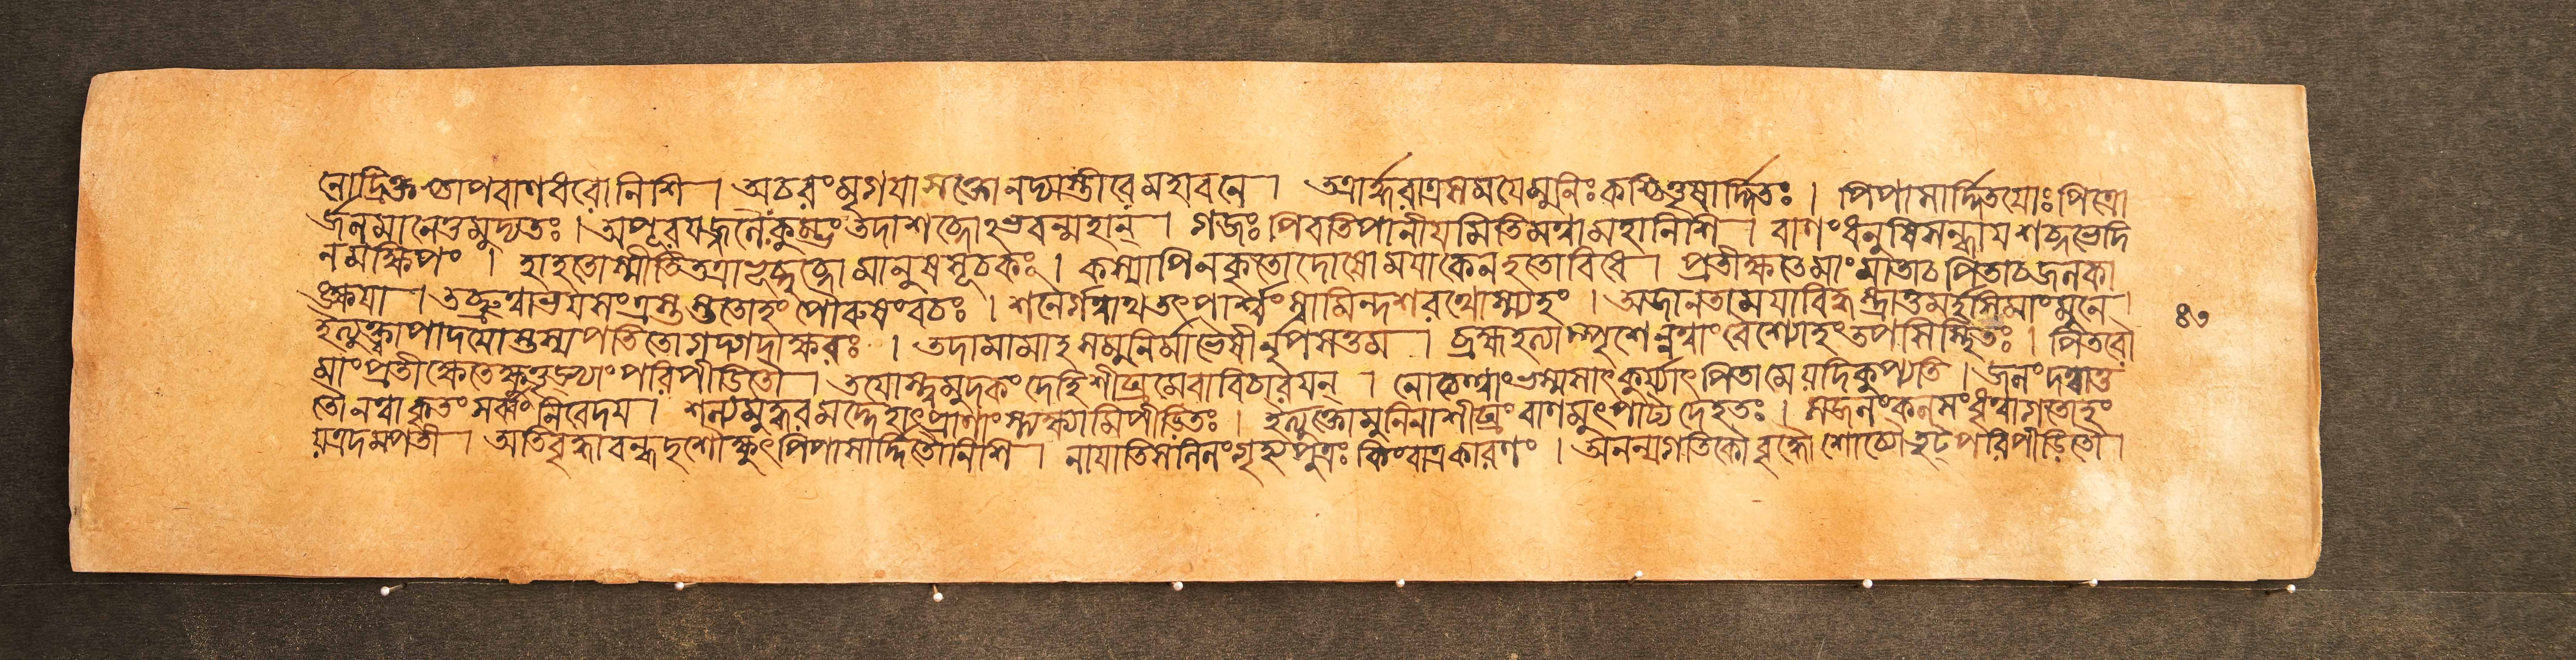 নোদ্রিক্তশ্চাপবাণধরোনিশি । অচরংমৃগয়াসক্তোনদ্যাস্তীরেমহাবনে । তত্রার্দ্ধরাত্রসময়েমুনিঃকশ্চিত্তৃষার্দ্দিতঃ । পিপাসার্দ্দিতয়োঃপিত্রো
র্জলমানেতুমুদ্যতঃ । অপূরয়জ্জলৈঃকুম্ভংতদাশব্দোঽভবন্মহান্ । গজঃপিবতিপানীয়মিতিমত্বামহানিশি । বাণংধনুষিসন্ধায়শব্দভেদি
নমক্ষিপং । হাহতোস্মীতিতত্রাভূচ্ছব্দোমানুষসূচকঃ । কস্যাপিনকৃতোদোষোময়াকেনহতোবিধে । প্রতীক্ষতেমাংমাতাচপিতাচজলকা
ংক্ষয়া । তচ্ছ্রুত্বাভয়সংত্রস্তস্ততোহংপৌরুষংবচঃ । শনৈর্গত্বাথতৎপার্শ্বংস্বামিন্দশরথোস্ম্যহং । অজানতাময়াবিদ্ধস্ত্রাতুমর্হসিমাংমুনে ।
ইত্যুক্ত্বাপাদয়োস্তস্যপতিতোগদ্গদাক্ষরঃ । তদামামাহসমুনির্মাভৈষীর্নৃপসত্তম । ব্রহ্মহত্যাস্পৃশেন্নত্বাংবৈশ্যোহংতপসিস্থিতঃ । পিতরৌ
মাংপ্রতীক্ষেতেক্ষুত্তৃড্ভ্যাংপরিপীডিতৌ । তয়োস্ত্বমুদকংদেহিশীঘ্রমেবাবিচারয়ন্ । নোচেত্ত্বাংভস্মসাৎকুর্য্যাৎপিতামেয়দিকুপ্যতি । জলংদত্বাতু
তৌনত্বাকৃতংসর্ব্বংনিবেদয় । শল্যমুদ্ধরমেদেহাৎপ্রাণাংস্ত্যক্ষ্যামিপীডিতঃ । ইত্যুক্তোমুনিনাশীঘ্রংবাণমুৎপাট্যদেহতঃ । সজলংকলসংধৃত্বাগতোহং
য়ত্রদম্পতী । অতিবৃদ্ধাবন্ধদৃশৌক্ষুৎপিপাসার্দ্দিতৌনিশি । নায়াতিসলিলংগৃহ্যপুত্রঃকিংবাত্রকারণং । অনন্যগতিকৌবৃদ্ধৌশোচ্যৌতৃট্পরিপীডিতৌ ।